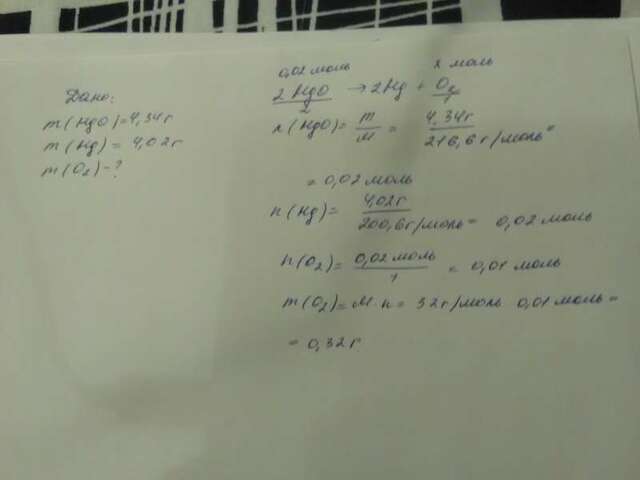 Дано:
m(HgO)=4,34г
m(Hg)= 4,02г
m(O₂)-?
0,02 моль x моль
2HgO → 2Hg + O₂
2 1
n(HgO)= m/M = 4,34г/216,6г/моль =
= 0,02 моль
n(Hg)= 4,02г/200,6г/моль = 0,02 моль
n(O₂)= 0,02 моль/1 = 0,01 моль
m(O₂)= M·n= 32г/моль 0,01 моль =
= 0,32г.